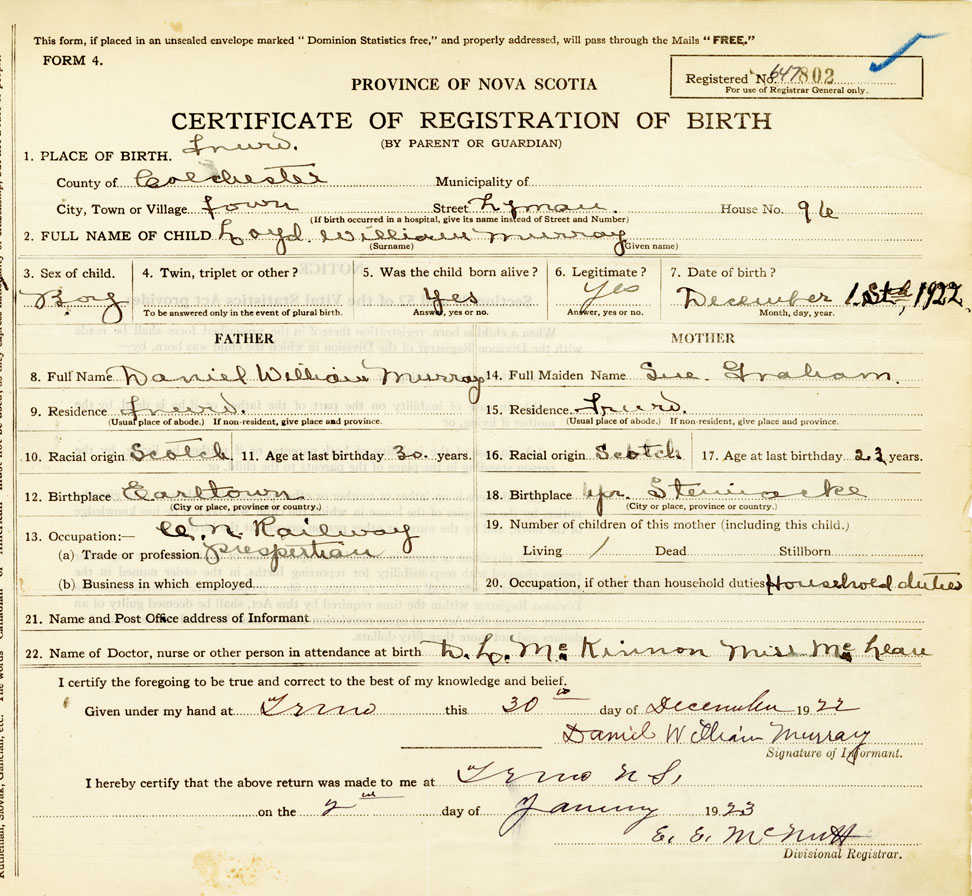 This form, if placed in an unsealed envelope marked "Dominion Statistics free," and properly addressed, will pass through the Mails "FREE."
FORM 4.
Registered No. 647802
For use of Registrar General only.
PROVINCE OF NOVA SCOTIA
CERTIFICATE OF REGISTRATION OF BIRTH
(BY PARENT OR GUARDIAN)
1. PLACE OF BIRTH. Truro.
County of Colchester Municipality of
City, Town or Village Town Street Lyman. House No. 96
(If birth occurred in a hospital, give its name instead of Street and Number)
2. FULL NAME OF CHILD Loyd. William Murray
(Surname) (Given name)
3. Sex of child. 4. Twin, triplet or other? 5. Was the child born alive? 6. Legitimate? 7. Date of birth?
Boy Yes Yes December 1.St, 1922.
To be answered only in the event of plural birth. Answer, yes or no. Answer, yes or no. Month, day, year.
FATHER MOTHER
8. Full Name Daniel William Murray 14. Full Maiden Name Sue. Graham.
9. Residence Truro. 15. Residence Truro.
(Usual place of abode.) If non-resident, give place and province. (Usual place of abode.) If non-resident, give place and province.
10. Racial origin Scotch. 11. Age at last birthday 30. years. 16. Racial origin Scotch 17. Age at last birthday 23 years.
12. Birthplace Earltown 18. Birthplace Upr. Stewiacke
(City or place, province or country.) (City or place, province or country.)
19. Number of children of this mother (including this child.)
13. Occupation:— C. N. Railway
(a) Trade or profession Living / Dead Stillborn
(b) Business in which employed 20. Occupation, if other than household duties Household duties
21. Name and Post Office address of Informant
22. Name of Doctor, nurse or other person in attendance at birth D. L. Mc Kinnon Miss Mc Lean
I certify the foregoing to be true and correct to the best of my knowledge and belief.
Given under my hand at Truro this 30th day of December 1922
Daniel William Murray
Signature of Informant.
I hereby certify that the above return was made to me at Truro N S.
on the 2nd day of January 1923
E. E. McNutt
Divisional Registrar.